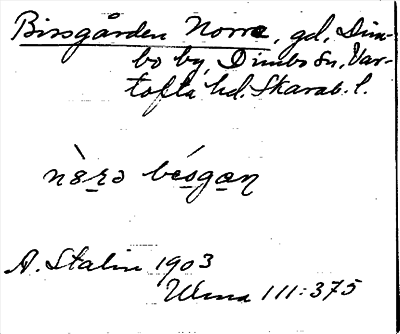 Bissgården Norra, gd, Dim-
bo by, Dimbo sn, Var-
tofta hd. Skarab. l.
A. Stalin 1903
111:375